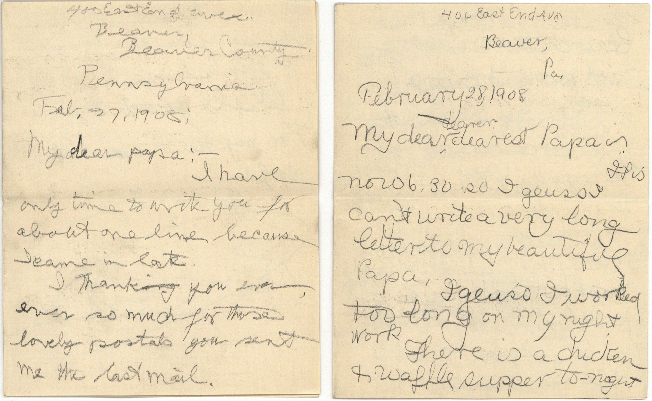 400 East End Avex.
Beaver,
Beaver County.
Pennsylvania
Feb, 27, 1908,
My dear papa:-
I have
only time to writ you for
about one line because
I came in late.
I thanking you ever,
ever so much for those
lovely postals you sent
me the last mail.
400 East End Ave
Beaver,
Pa,
February 28, 1908
My dear, dearest Papa:
It is
now 6.30 so I geuss I
can't write a very long
letter to my beautiful
Papa,
I geuss I worked
too long on my night
work
There is a chicken
& waffle supper to-night